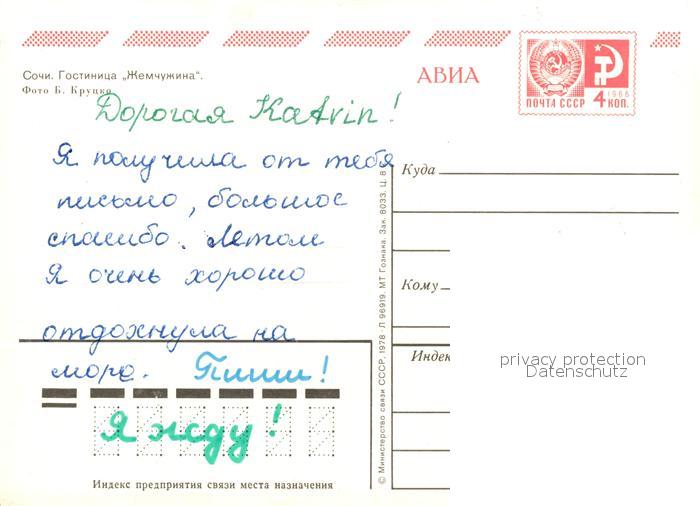 Сочи. Гостиница „Жемчужина“.
Фото Б. Круцко
АВИА
ПОЧТА СССР 4 КОП.
1966
Дорогая Katrin!
Я получила от тебя
письмо, большое
спасибо. Летом
Я очень хорошо
отдохнула на
море. Пиши!
Я жду!
Индекс предприятия связи места назначения
© Министерство связи СССР, 1978. Л 96919. МТ Гознака. Зак. 8033. Ц. 8
Куда
Кому
Индек
privacy protection
Datenschutz